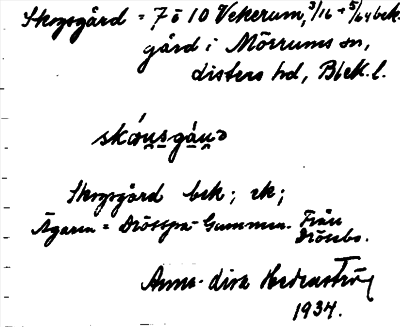 Skogsgård = 7 o 10 Vekerum, 3/16 + 5/64 bek.
gård i Mörrums sn,
Listers hd, Blek. l.
skóu̯s̯gá̯u̯ɔ
Skogsgård bek; ek;
Ägaren = Drösepa- Gummen. Från
Anna-Lisa Hedenström
1934.